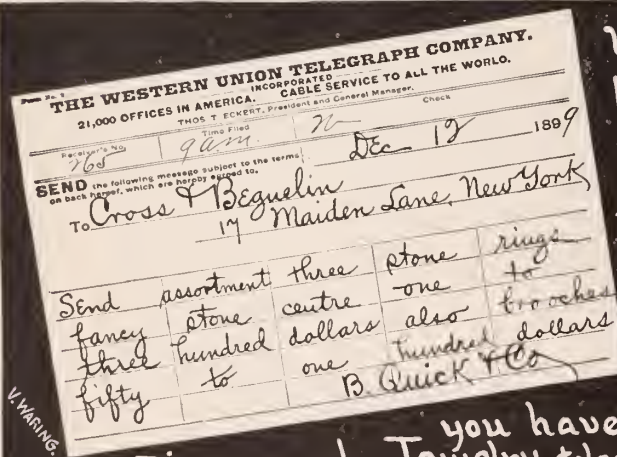 THE WESTERN UNION TELEGRAPH COMPANY.
INCORPORATED
21,000 OFFICES IN AMERICA. CABLE SERVICE TO ALL THE WORLD.
THOS T. ECKERT, President and General Manager.
Receiver's No. Time Filed Check
265 9 am
Dec 12 1899
SEND the following message subject to the terms
on back hereof, which are hereby agreed to.
To Cross & Beguelin
17 Maiden Lane, New York
Send assortment three stone rings
fancy stone centre one to
three hundred dollars also brooches
fifty to one hundred dollars
B. Quick & Co
V. WARING.
you have